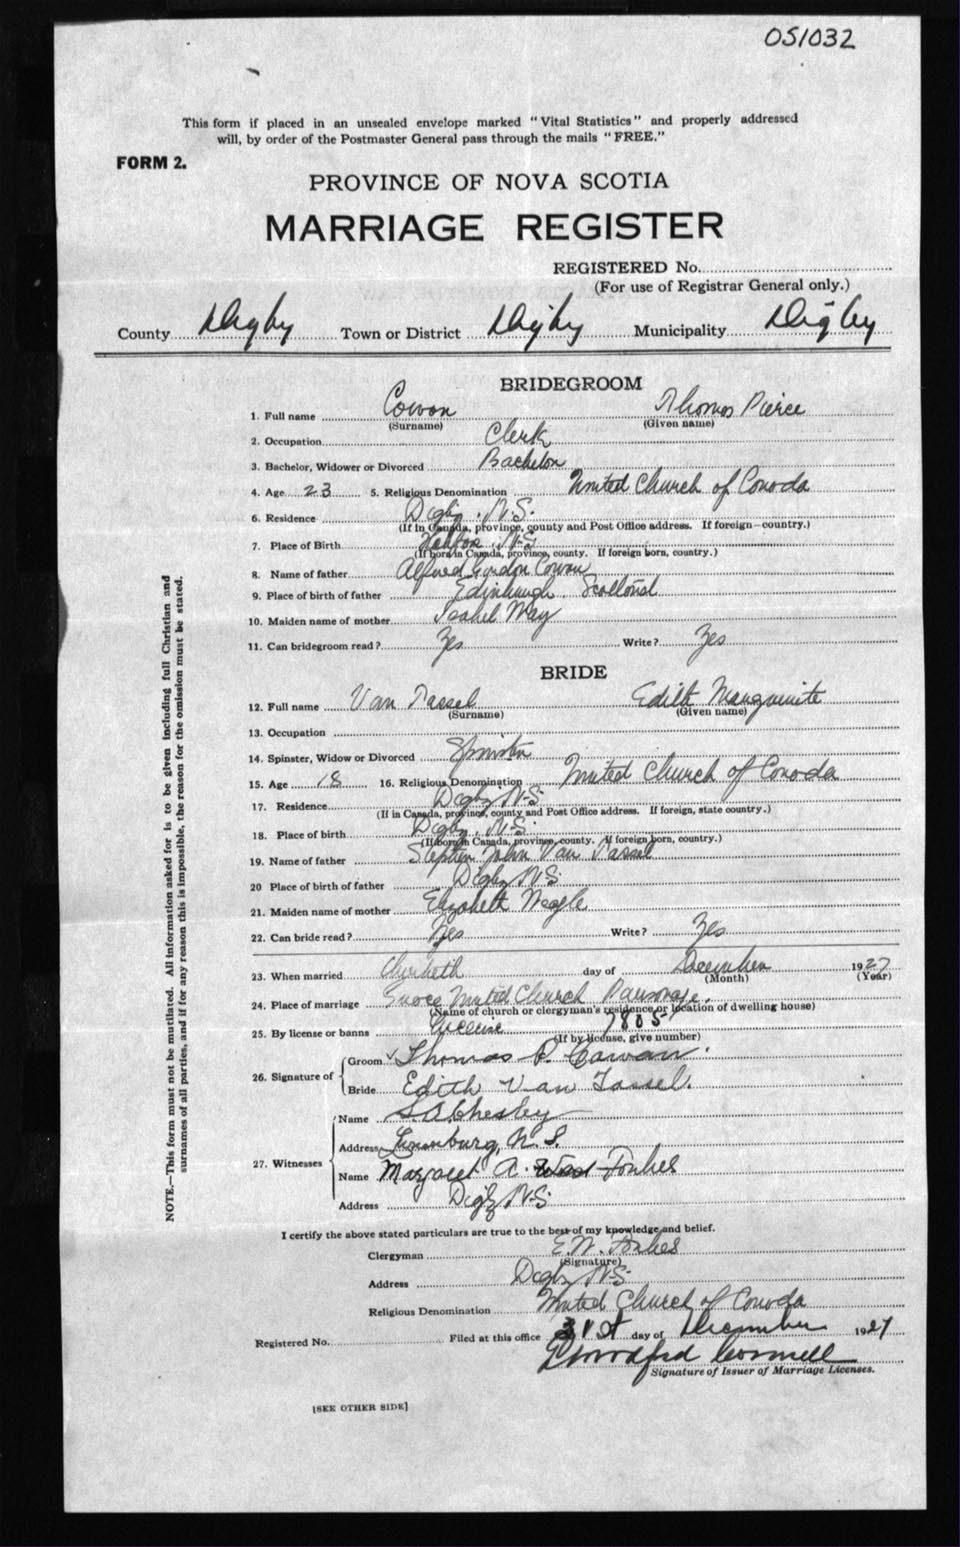 051032
This form if placed in an unsealed envelope marked "Vital Statistics" and properly addressed
will, by order of the Postmaster General pass through the mails "FREE."
FORM 2.
PROVINCE OF NOVA SCOTIA
MARRIAGE REGISTER
REGISTERED No.
(For use of Registrar General only.)
County Digby Town or District Digby Municipality Digby
BRIDEGROOM
1. Full name Cowan Thomas Pierce
(Surname) (Given name)
2. Occupation Clerk
3. Bachelor, Widower or Divorced Bachelor
4. Age 23 5. Religious Denomination United Church of Canada
6. Residence Digby, N.S.
(If in Canada, province, county and Post Office address. If foreign—country.)
7. Place of Birth N.S.
(If born in Canada, province, county. If foreign born, country.)
8. Name of father Alfred Gordon Cowan
9. Place of birth of father Edinburgh Scotland
10. Maiden name of mother Isabel Way
11. Can bridegroom read? Yes Write? Yes
BRIDE
12. Full name Van Tassel Edith Marguerite
(Surname) (Given name)
13. Occupation
14. Spinster, Widow or Divorced Spinster
15. Age 18 16. Religious Denomination United Church of Canada
17. Residence Digby N.S.
(If in Canada, province, county and Post Office address. If foreign, state country.)
18. Place of birth Digby, N.S.
(If born in Canada, province, county. If foreign born, country.)
19. Name of father Stephen John Van Tassel
20 Place of birth of father Digby N.S.
21. Maiden name of mother Elizabeth
22. Can bride read? Yes Write? Yes
23. When married day of December 1927
(Month) (Year)
24. Place of marriage Grace United Church Parsonage.
(Name of church or clergyman's residence or location of dwelling house)
25. By license or banns License 7805
(If by license, give number)
26. Signature of Groom Thomas P. Cowan.
Bride Edith Van Tassel.
27. Witnesses Name Chesley
Address Lunenburg, N.S.
Name Margaret A. Forbes
Address Digby N.S.
I certify the above stated particulars are true to the best of my knowledge and belief.
Clergyman E.W. Forbes
(Signature)
Address Digby N.S.
Religious Denomination United Church of Canada
Registered No. Filed at this office 31st day of December 1927
Signature of Issuer of Marriage Licenses.
[SEE OTHER SIDE]
NOTE.—This form must not be mutilated. All information asked for is to be given including full Christian and
surnames of all parties, and if for any reason this is impossible, the reason for the omission must be stated.